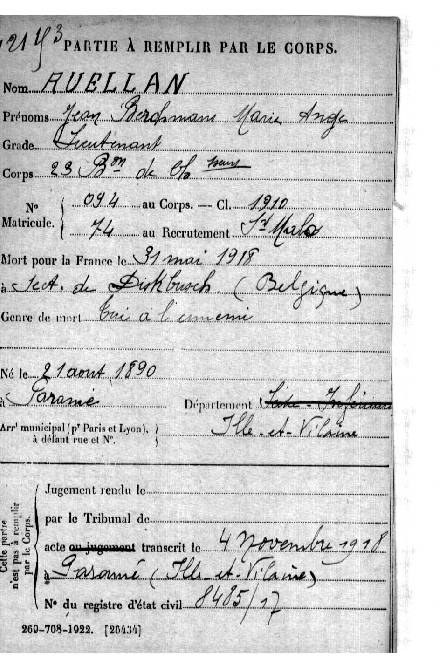 PARTIE À REMPLIR PAR LE CORPS.
Nom RUELLAN
Prénoms Jean Berchmans Marie Ange
Grade Lieutenant
Corps 23 Bon de Ch
N° Matricule. 094 au Corps. — Cl. 1910
74 au Recrutement St Malo
Mort pour la France le 31 mai 1918
à Sect. de Dickbusch (Belgique)
Genre de mort Tué à l'ennemi
Né le 21 aout 1890
à Paramé Département
Arrt municipal (pr Paris et Lyon), à défaut rue et N°. Ille-et-Vilaine
Cette partie n'est pas à remplir par le Corps.
Jugement rendu le
par le Tribunal de
acte ou jugement transcrit le 4 novembre 1918
à Paramé (Ille-et-Vilaine)
N° du registre d'état civil 8485/17
269-708-1922. [26434]